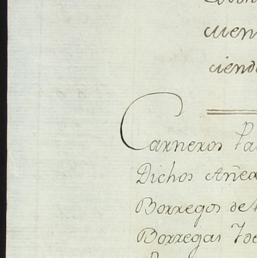 cuen
ciend
Carneros Pa
Dichos Añe
Borregos de
Borregas